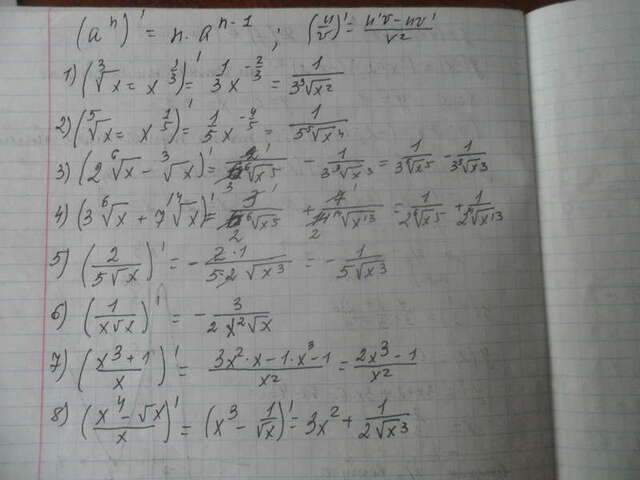 (aⁿ)' = n · aⁿ⁻¹ ; (u/v)' = (u'v - uv')/v²
1) (∛x = x^(1/3))' = 1/3 x^(-2/3) = 1/(3∛x²)
2) (⁵√x = x^(1/5))' = 1/5 x^(-4/5) = 1/(5⁵√x⁴)
3) (2⁶√x - ³√x)' = 1/(3⁶√x⁵) - 1/(3³√x³) = 1/(3⁶√x⁵) - 1/(3³√x³)
4) (3⁶√x + 7¹⁴√x)' = 1/(2⁶√x⁵) + 1/(2¹⁴√x¹³) = 1/(2⁶√x⁵) + 1/(2√x¹³)
5) (2/(5√x))' = - (2·1)/(5·2√x³) = - 1/(5√x³)
6) (1/(x√x))' = - 3/(2x²√x)
7) ((x³+1)/x)' = (3x²·x-1·x³-1)/x² = (2x³-1)/x²
8) ((x⁴-√x)/x)' = (x³ - 1/√x)' = 3x² + 1/(2√x³)